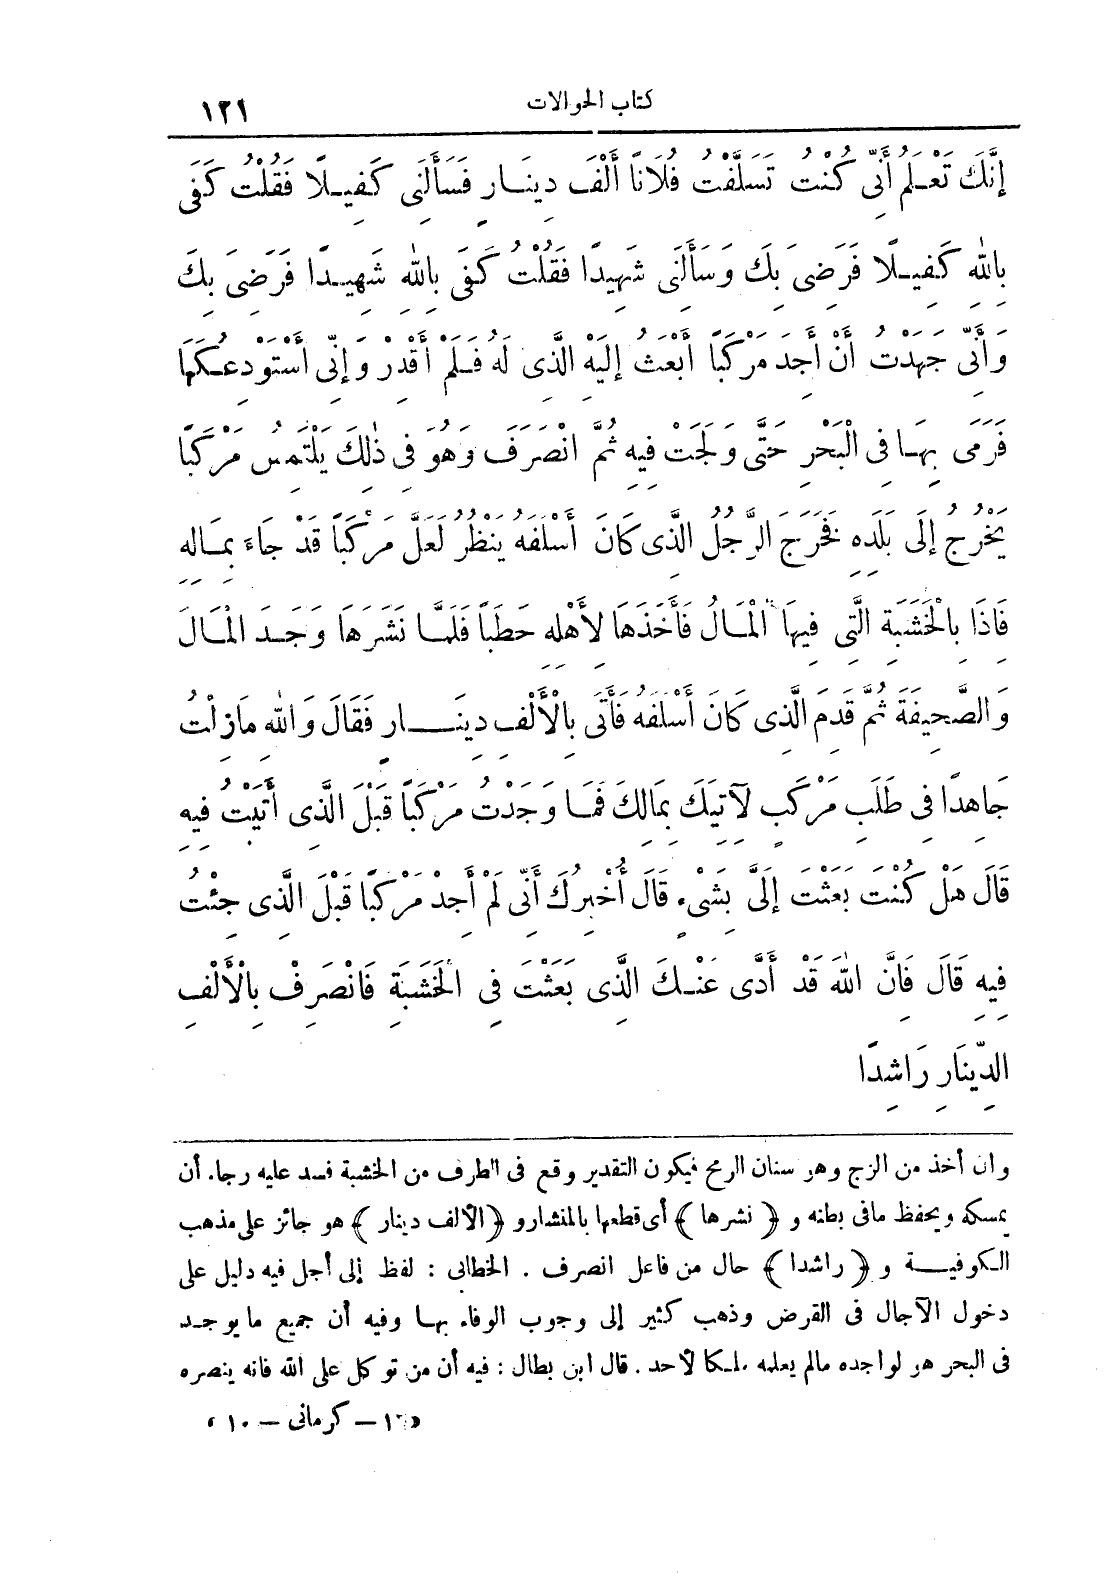 كتاب الحوالات ١٢١
إِنَّكَ تَعْلَمُ أَنِّى كُنْتُ تَسَلَّفْتُ فُلَانًا أَلْفَ دِينَارٍ فَسَأَلَنِى كَفِيلًا فَقُلْتُ كَفَى
بِاللهِ كَفِيلًا فَرَضِىَ بِكَ وَسَأَلَنِى شَهِيدًا فَقُلْتُ كَفَى بِاللهِ شَهِيدًا فَرَضِىَ بِكَ
وَأَنِّى جَهَدْتُ أَنْ أَجِدَ مَرْكَبًا أَبْعَثُ إِلَيْهِ الَّذِى لَهُ فَلَمْ أَقْدِرْ وَإِنِّى أَسْتَوْدِعُكَهَا
فَرَمَى بِهَا فِى الْبَحْرِ حَتَّى وَلَجَتْ فِيهِ ثُمَّ انْصَرَفَ وَهُوَ فِى ذٰلِكَ يَلْتَمِسُ مَرْكَبًا
يَخْرُجُ إِلَى بَلَدِهِ فَخَرَجَ الرَّجُلُ الَّذِى كَانَ أَسْلَفَهُ يَنْظُرُ لَعَلَّ مَرْكَبًا قَدْ جَاءَ بِمَالِهِ
فَاذَا بِالْخَشَبَةِ الَّتِى فِيهَا الْمَالُ فَأَخَذَهَا لِأَهْلِهِ حَطَبًا فَلَمَّا نَشَرَهَا وَجَدَ الْمَالَ
وَالصَّحِيفَةَ ثُمَّ قَدِمَ الَّذِى كَانَ أَسْلَفَهُ فَأَتَى بِالْأَلْفِ دِينَارٍ فَقَالَ وَاللهِ مَازِلْتُ
جَاهِدًا فِى طَلَبِ مَرْكَبٍ لآتِيَكَ بِمَالِكَ فَمَا وَجَدْتُ مَرْكَبًا قَبْلَ الَّذِى أَتَيْتُ فِيهِ
قَالَ هَلْ كُنْتَ بَعَثْتَ إِلَىَّ بِشَىْءٍ قَالَ أُخْبِرُكَ أَنِّى لَمْ أَجِدْ مَرْكَبًا قَبْلَ الَّذِى جِئْتُ
فِيهِ قَالَ فَانَّ اللهَ قَدْ أَدَّى عَنْكَ الَّذِى بَعَثْتَ فِى الْخَشَبَةِ فَانْصَرِفْ بِالْأَلْفِ
الدِّينَارِ رَاشِدًا
وان أخذ من الزج وهو سنان الرمح فيكون التقدير وقع فى الطرف من الخشبة فسد عليه رجاء أن
يمسكه ويحفظ مافى بطنه و ﴿ نشرها ﴾ أى قطعها بالمنشار و ﴿الألف دينار ﴾ هو جائز على مذهب
الكوفية و ﴿ راشدا ﴾ حال من فاعل انصرف . الخطابى : لفظ إلى أجل فيه دليل على
دخول الآجال فى القرض وذهب كثير إلى وجوب الوفاء بها وفيه أن جميع مايوجد
فى البحر هو لواجده مالم يعلمه ملكا لأحد . قال ابن بطال : فيه أن من توكل على الله فانه ينصره
«١٦ – كرمانى – ١٠»